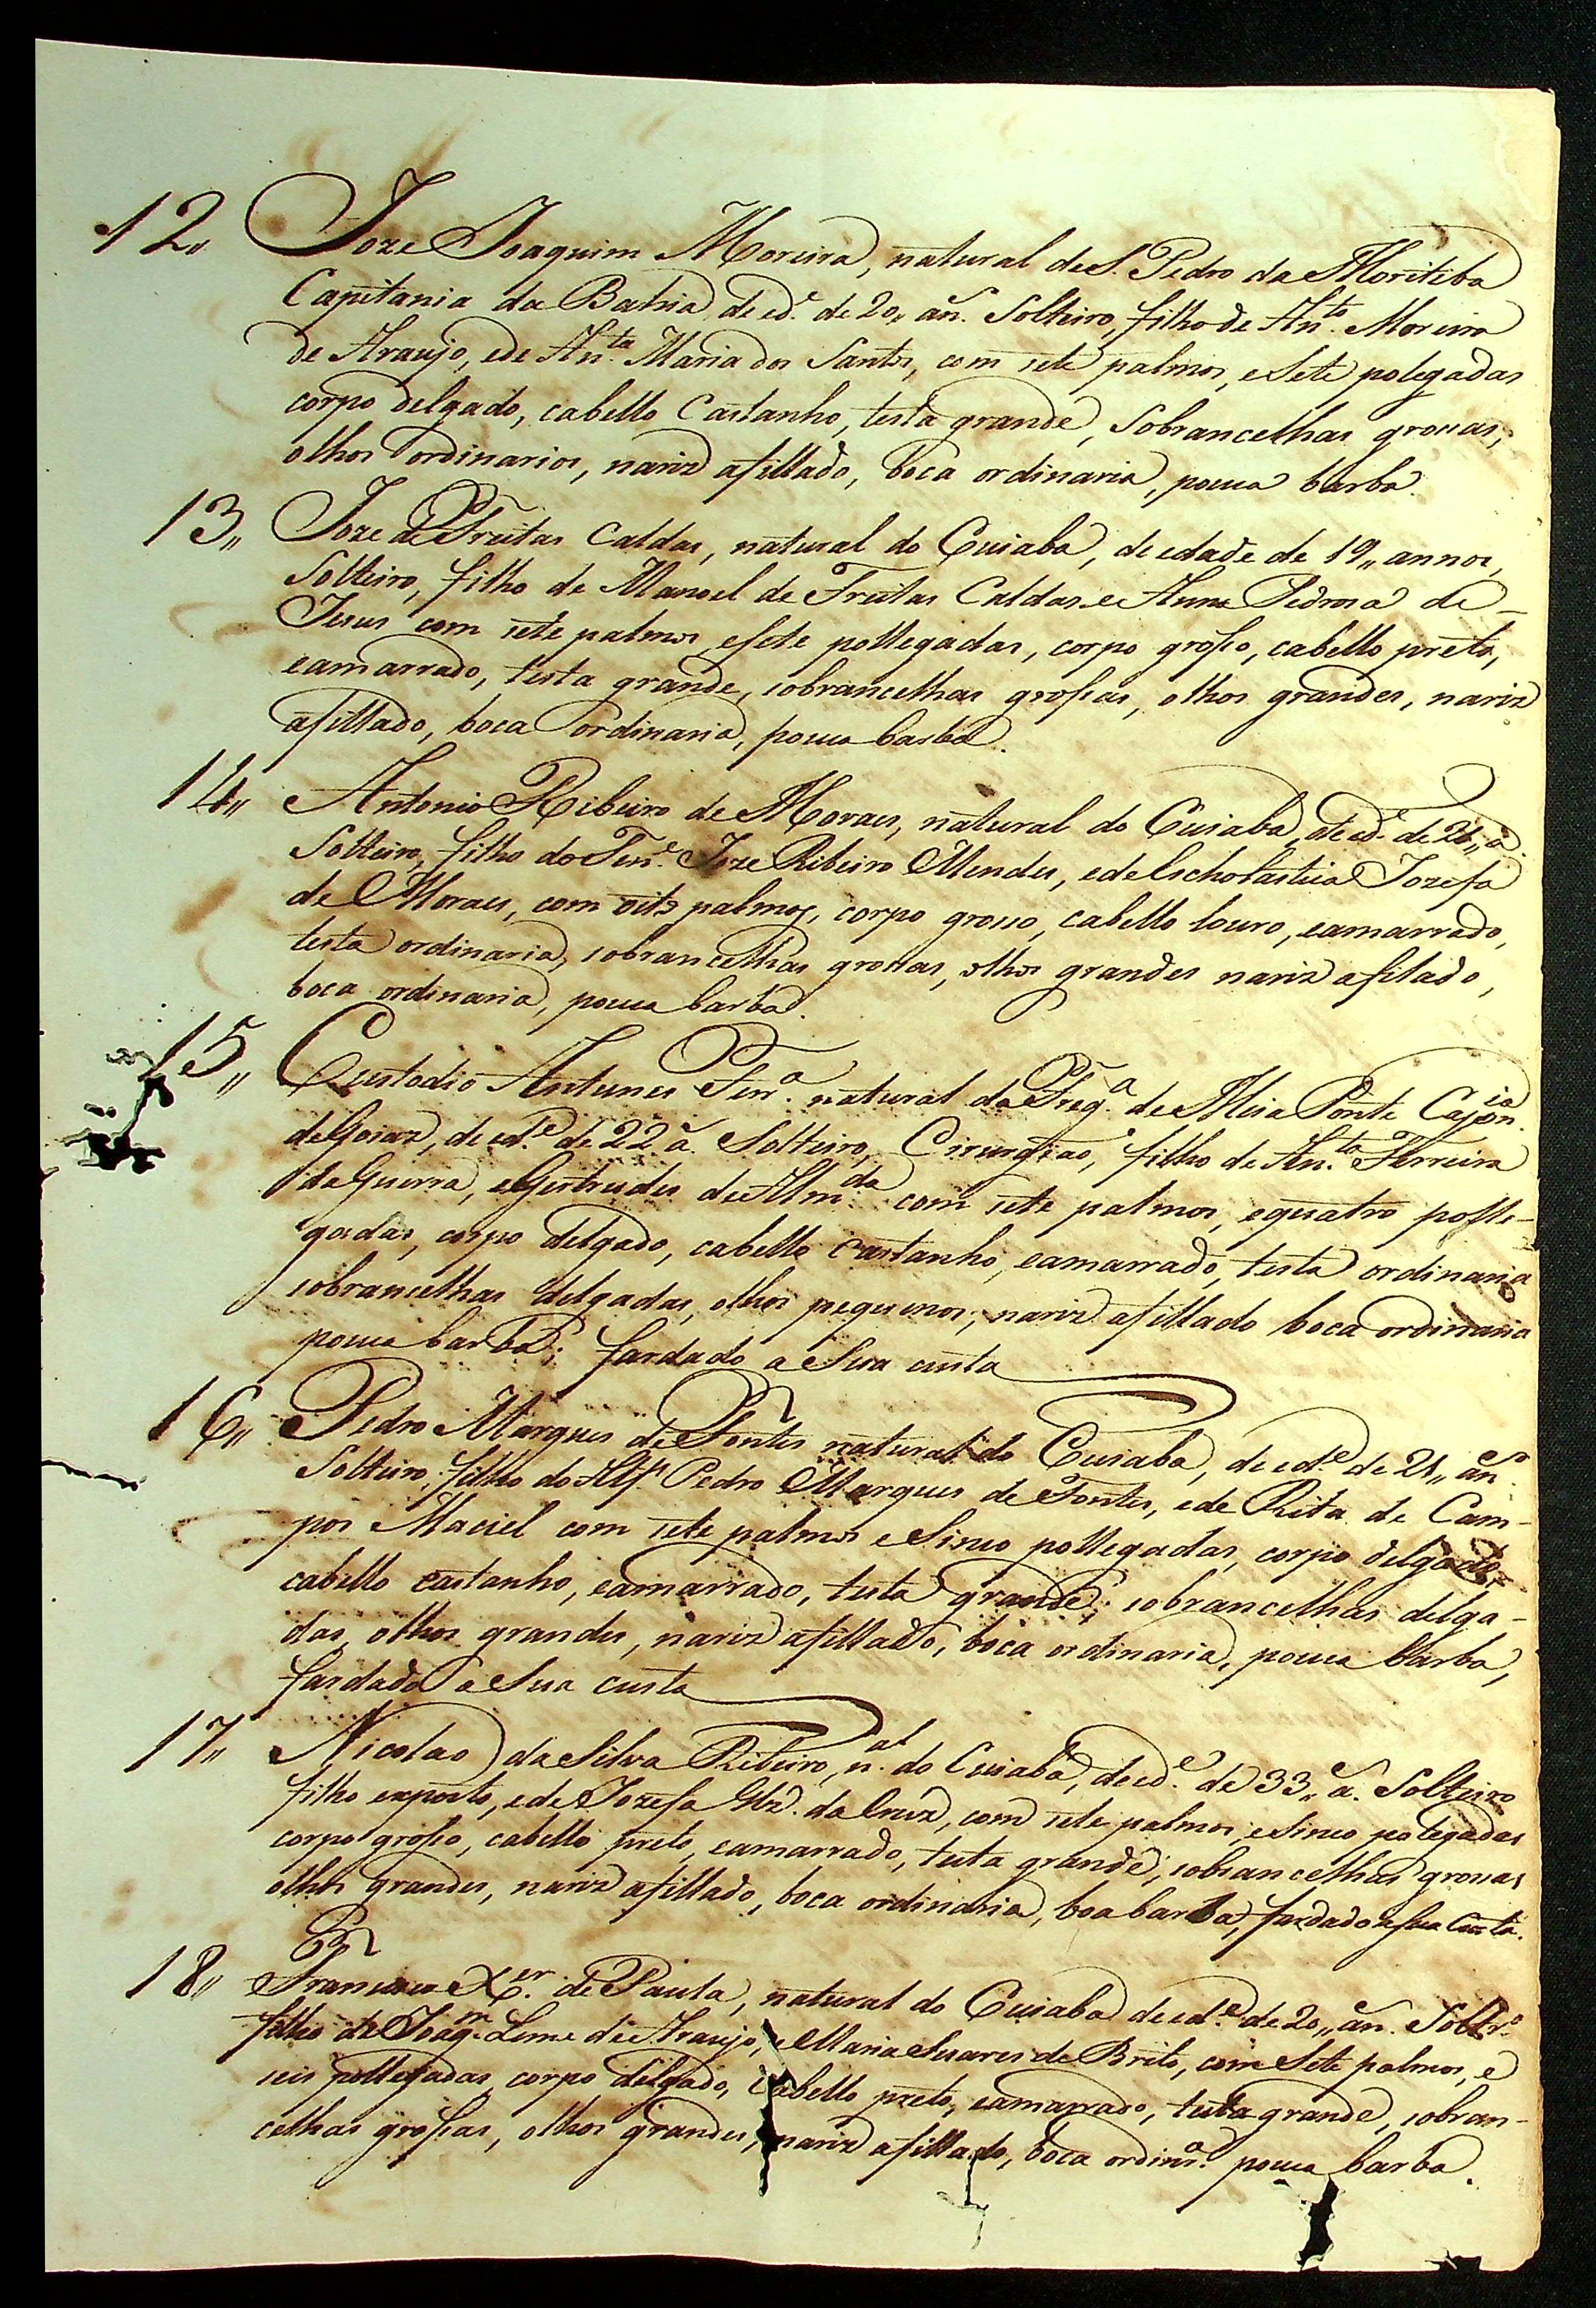 12,, Joze Joaquim Moreira, natural de S. Pedro da Moritiba
Capitania da Bahia de ed.e de 20,, an.s Solteiro, filho de An.to Moreira
de Araujo, e de An.ta Maria dos Santos, com sete palmos, e Sete polegadas
corpo delgado, cabello Castanho, testa grande, Sobrancelhas grossas,
olhos ordinarios, nariz afillado, boca ordinaria, pouca barba.
13,, Joze de Freitas Caldas, natural do Cuiaba, de edade de 19,, annos,
Solteiro, filho de Manoel de Freitas Caldas e Anna Pedrosa de
Jesus com sete palmos, e Sete pollegadas, corpo grosso, cabello preto,
eamarrado, testa grande, sobrancelhas grossas, olhos grandes, nariz
afillado, boca ordinaria, pouca barba.
14,, Antonio Ribeiro de Moraes, natural do Cuiaba, de ed.e de 26,, a.
Solteiro, filho do Ten.e Joze Ribeiro Mendes, e de Escholastica Jozefa
de Moraes, com oito palmos, corpo grosso, cabello louro, eamarrado,
testa ordinaria, sobrancelhas grossas, olhos grandes nariz afilado,
boca ordinaria, pouca barba.
15,, Custodio Antunes Ferr.a natural da Freg.a de Meia Ponte Capn.ia
de Goiaz, de ed.e de 22 a. Solteiro, Cirurgião, filho de An.to Ferreira
da Guerra, e Gertrudes de Alm.da com sete palmos, e quatro polle-
gadas, corpo delgado, cabello castanho, eamarrado, testa ordinaria
sobrancelhas delgadas, olhos pequenos; nariz afillado boca ordinaria
pouca barba; fardado a Sua custa
16,, Pedro Marques de Fontes natural do Cuiaba, de ed.e de 21,, an.s
Solteiro, filho do Alf.s Pedro Marques de Fontes, e de Rita de Cam-
pos Maciel com sete palmos e Sinco pollegadas, corpo delgado,
cabello castanho, eamarrado, testa grande; sobrancelhas delga-
das, olhos grandes, nariz afillado, boca ordinaria, pouca barba,
fardado a Sua custa
17,, Nicolao da Silva Ribeiro, n.al do Cuiaba, de ed.e de 33,, a. Solteiro
filho exposto, e de Jozefa Glz. da Cruz, com sete palmos, e Sinco polegadas
corpo grosso, cabello preto, eamarrado, testa grande; sobrancelhas grossas
olhos grandes, nariz afillado, boca ordinaria, boa barba, fardado a sua Custa.
18,, Francisco X.er de Paula, natural do Cuiaba de ed.e de 20,, an. Soltr.o
filho de Joaq.m Leme de Araujo, e Maria Suares de Brito, com Sete palmos, e
seis pollegadas corpo delgado, cabello preto, eamarrado, testa grande, sobran-
celhas grossas, olhos grandes, nariz afillado, boca ordinr.a pouca barba.